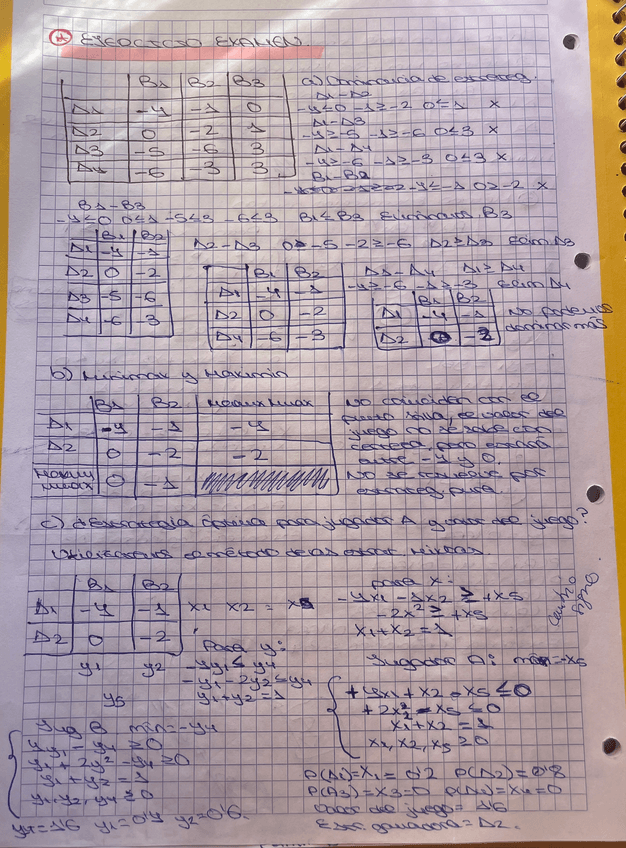 EJERCICIO EXAMEN.
B1 B2 B3
A1 -4 -1 0
A2 0 -2 1
A3 -5 -6 3
A4 -6 -3 3
a) Dominancia de estrateg.
A1-A2
-4≤0 -1≥-2 0≤1 X
A1-A3
-4≥-5 -1≥-6 0≤3 X
A1-A4
-4≥-6 -1≥-3 0≤3 X
B1-B2
-4≤-1 0≥-2 X
B1-B3
-4≤0 0≤1 -5≤3 -6≤3 B1≤B3 Eliminamos B3
B1 B2
A1 -4 -1
A2 0 -2
A3 -5 -6
A4 -6 -3
A2-A3 0≥-5 -2≥-6 A2≥A3 Elim A3
B1 B2
A1 -4 -1
A2 0 -2
A4 -6 -3
A1-A4 A1≥A4
-4≥-6 -1≥-3 Elim A4
B1 B2
A1 -4 -1
A2 0 -2
No podemos
dominar más
b) Minimax y Maximin
B1 B2
A1 -4 -1 -4
A2 0 -2 -2
0 -1
No coinciden con el
punto silla, el valor del
juego no se sabe con
certeza, pero estará
entre -4 y 0.
No se resuelve por
estrateg. pura.
c) ¿Estrategia óptima para jugador A y valor del juego?
Utilizamos el método de las estrat. mixtas.
B1 B2
A1 -4 -1 x1 x2 = x5
A2 0 -2
y1 y2
y5
para x:
-4x1 - 1x2 ≥ +x5
-2x2 ≥ +x5
x1+x2=1
Para y:
-4y1 ≤ y4
-y1-2y2≤y4
y1+y2=1
Jugador A: min=-x5
+4x1+x2-x5≤0
+2x2-x5≤0
x1+x2=1
x1,x2,x5≥0
Jug B min=-y4
4y1-y4≥0
y1+2y2-y4≥0
y1+y2=1
y1,y2,y4≥0
y4=1'6 y1=0'4 y2=0'6.
P(A1)=x1=0'2 P(A2)=0'8
P(A3)=x3=0 P(A4)=x4=0
Valor del juego=1'6
Estr. ganadora=A2.